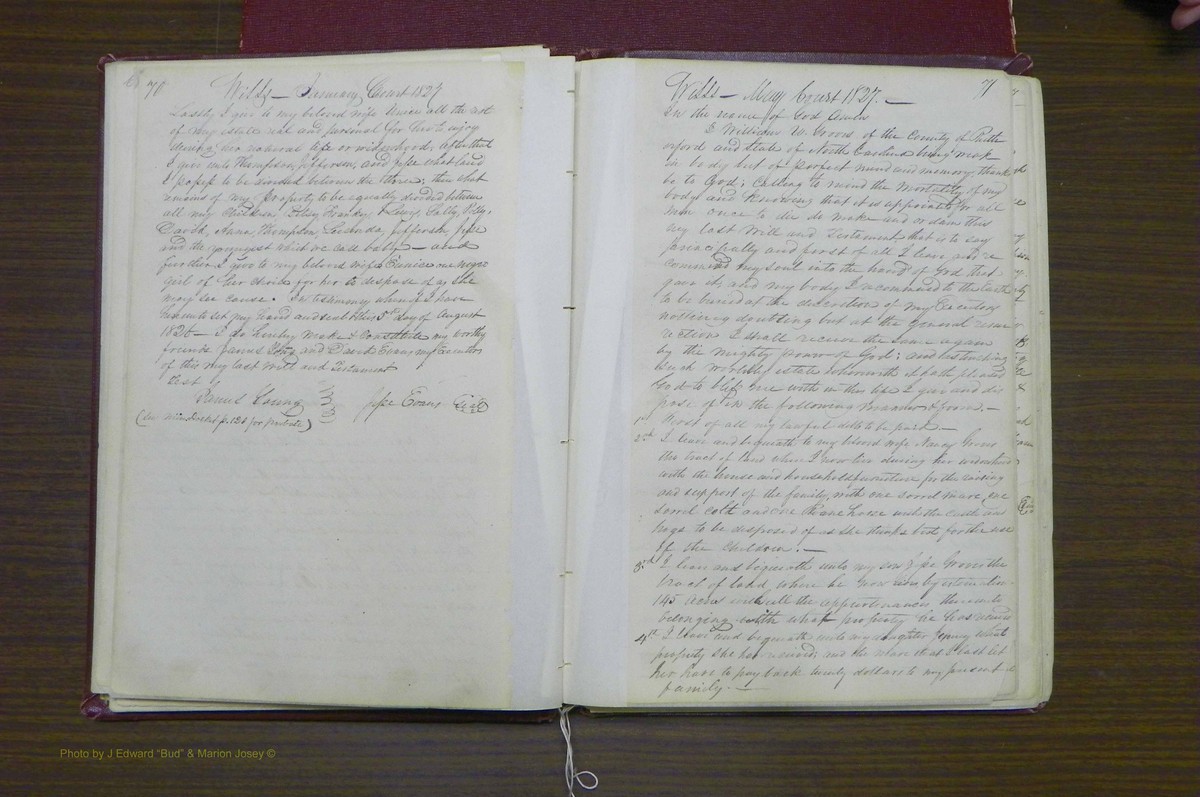 70
Wills — January Court 1827
Lastly I give to my beloved wife Unice all the rest
of my estate real and personal for her to enjoy
during her natural life or widowhood. After that
I give unto Thompson, Jefferson, and Jesse what land
I possess to be divided between the three; then what
remains of my property to be equally divided between
all my Children, Betsy Franky & Lewis, Sally, Polly,
David, Anna Thompson, Lucinda, Jefferson Jesse
and the youngest which we call baby — and
further I give to my beloved wife Eunice one negro
girl of her choice for her to dispose of as she
may see cause. In testimony whereof I have
hereunto set my hand and seal this 5th day of August
1826 — I do hereby make & constitute my worthy
friends James Long and David Evans my Executors
of this my last will and Testament
Test
James Young Jesse Evans Seal
(See Minute Docket p. 121 for probate)
Wills — May Court 1827. — 71
In the name of God Amen
I William W. Grooms of the County of Ruth
erford and State of North Carolina being weak
in body but of perfect mind and memory thanks
be to God; Calling to mind the Mortality of my
body and knowing that it is appointed for all
men once to die do make and ordain this
my last Will and Testament that is to say
principally and first of all I leave and re
commend my soul into the hand of God that
gave it, and my body I recommend to the earth
to be buried at the discretion of my Executors
nothing doubting but at the General resur
rection I shall receive the same again
by the mighty power of God; and as touching
such worldly estate wherewith it hath pleased
God to bless me with in this life I give and dis
pose of in the following manner & form. —
1st First of all my lawful debts to be paid. —
2nd I leave and bequeath to my beloved wife Nancy
the tract of land where I now live during her widowhood
with the house and household furniture for the raising
and support of the family, with one sorrel mare, one
sorrel colt and one Roane horse with the cattle and
hogs to be disposed of as she thinks best for the use
of the children. —
3rd I leave and bequeath unto my son Jesse the
tract of land, where he now lives by estimation
145 acres with all the appurtenances thereunto
belonging with what property he has received
4th I leave and bequeath unto my daughter Jenny what
property she has received; and the mare that I last let
her have to pay back twenty dollars to my present
family. —
Photo by J Edward “Bud” & Marion Josey ©